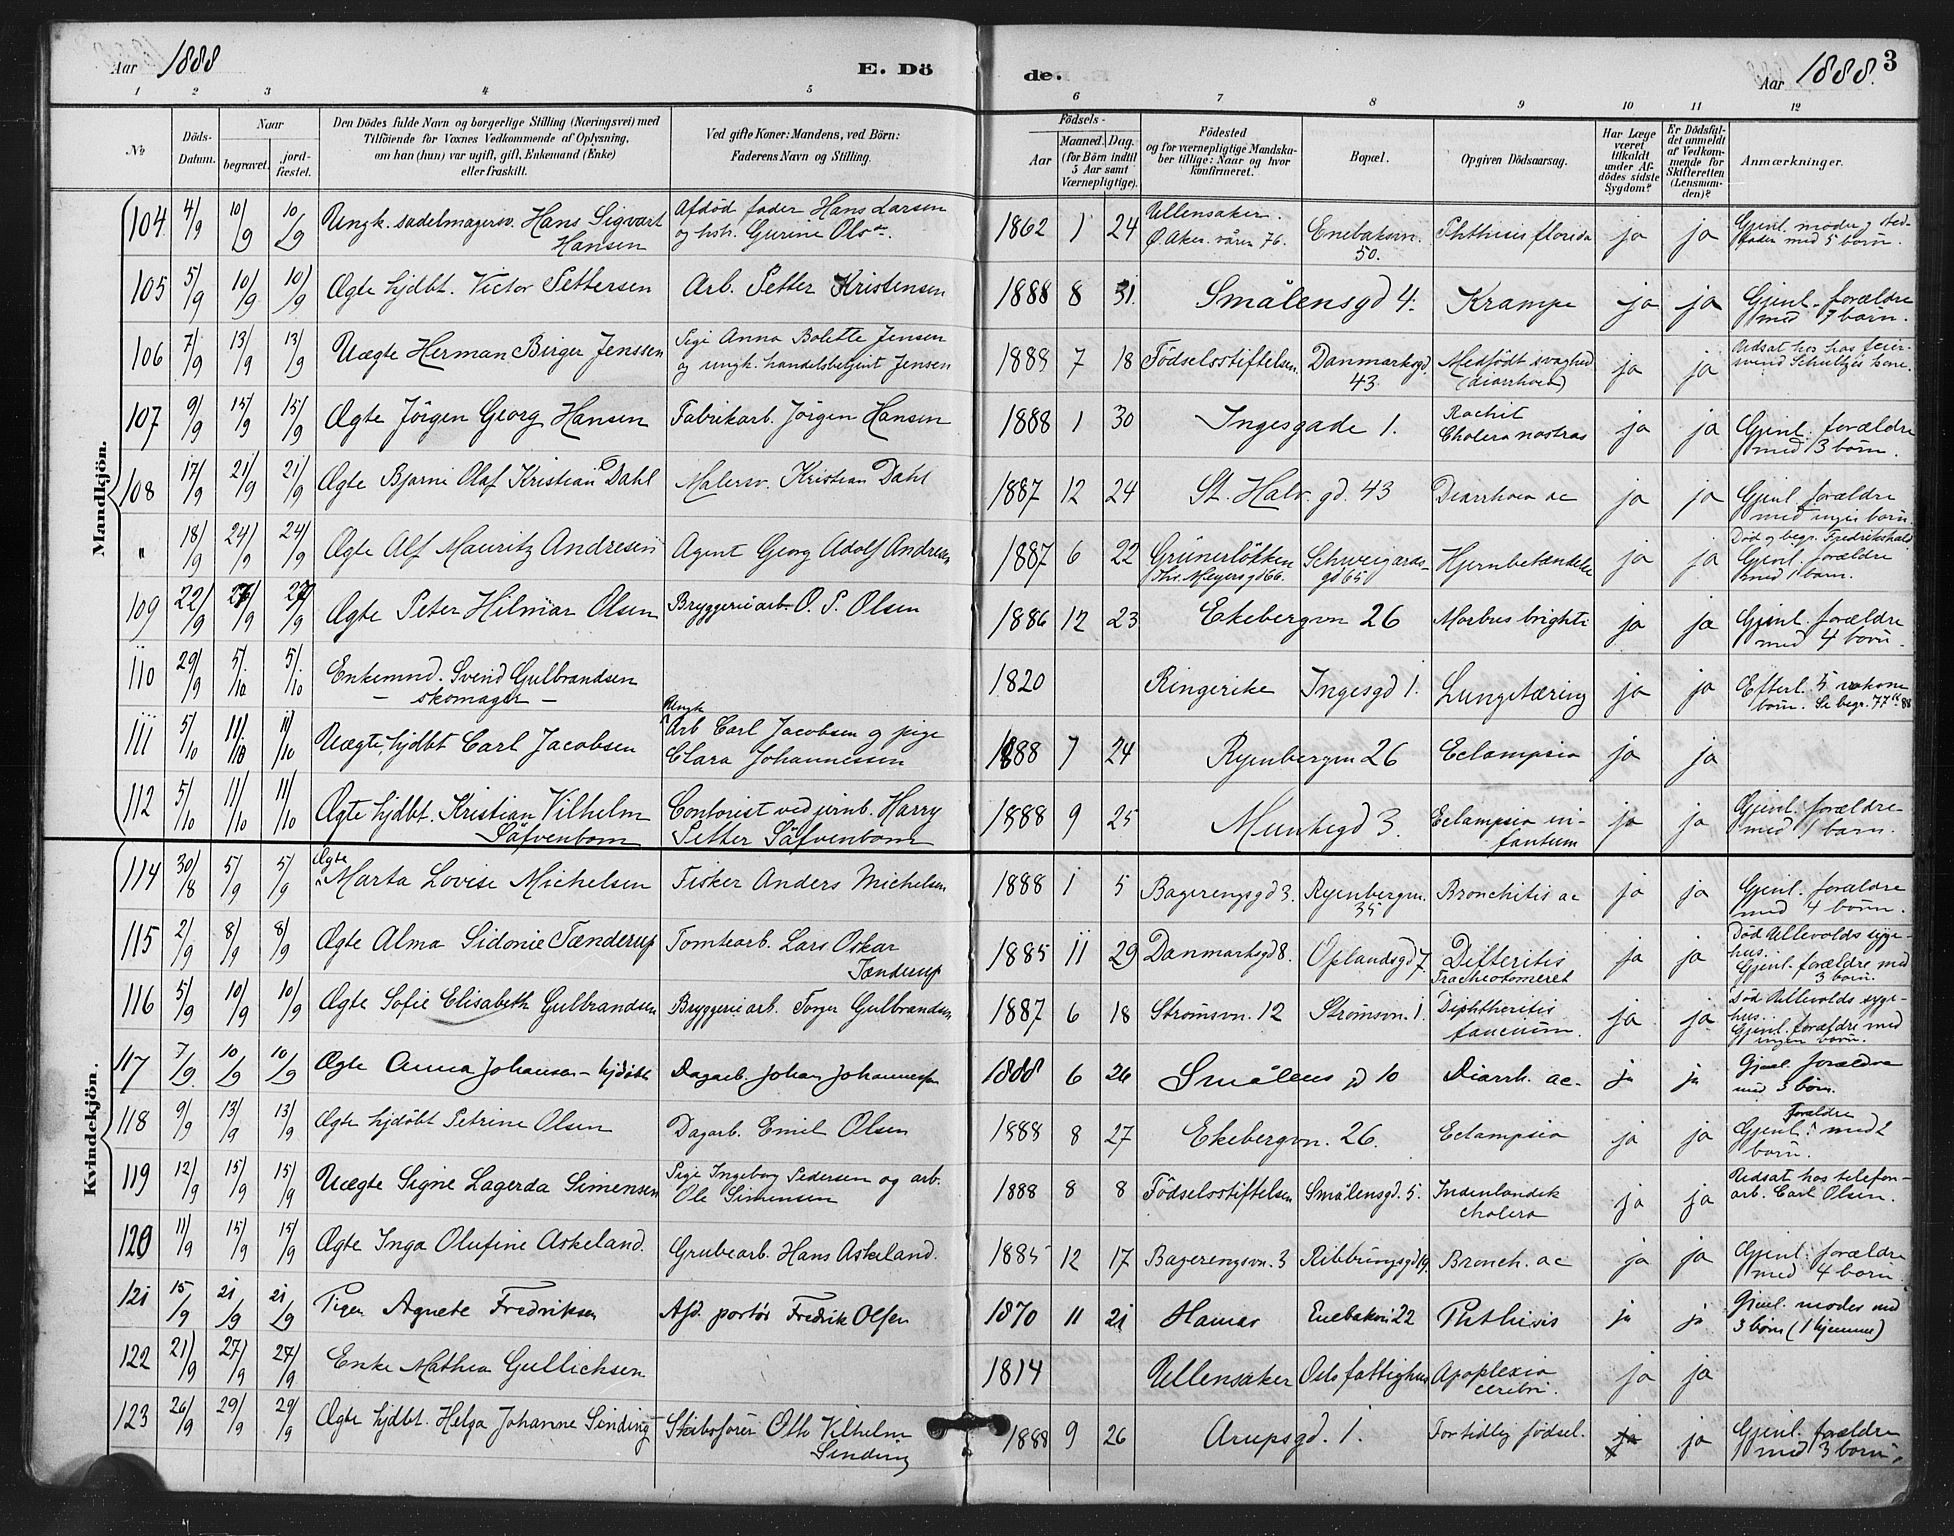 Aar 1888
E. Dö
de.
Aar 1888.
3
1 2 3 4 5 6 7 8 9 10 11 12
№
Döds-Datum.
Naar
begravet.
jord-fæstet.
Den Dödes fulde Navn og borgerlige Stilling (Næringsvei) med
Tilföiende for Voxnes Vedkommende af Oplysning,
om han (hun) var ugift, gift, Enkemand (Enke)
eller fraskilt.
Ved gifte Koner: Mandens, ved Börn:
Faderens Navn og Stilling.
Födsels-
Aar
Maaned. Dag.
(for Börn indtil
5 Aar samt
Værnepligtige).
Födested
og for værnepligtige Mandska-
ber tillige: Naar og hvor
konfirmeret.
Bopæl.
Opgiven Dödsaarsag.
Har Læge
været
tilkaldt
under Af-
dödes sidste
Sygdom?
Er Dödsfal-
det anmeldt
af Vedkom-
mende for
Skifteretten
(Lensman-
den)?
Anmærkninger.
Mandkjön.
104 4/9 10/9 10/9 Ungk. sadelmagersv. Hans Sigvart Hansen Afdöd fader Hans Larsen og hstr. Gurine Olsdr. 1862 1 24 Ullensaker. Ø. Aker. våren 76. Enebaksvn. 50. Phthisis florida ja ja Gjenl. moder, sted-fader med 5 børn.
105 5/9 10/9 10/9 Ægte hjdbt. Victor Pettersen Arb. Petter Kristensen 1888 8 31. Smålensgd 4. Krampe ja ja Gjenl. forældre med 7 børn.
106 7/9 13/9 13/9 Uægte Herman Birger Jenssen Pige Anna Bolette Jensen og ungk. handelsbetjent Jensen 1888 7 18 Födselsstiftelsen. Danmarksgd. 43. Medfødt svaghed (diarrhoea) ja ja Udsat hos hos feier-svend Schultzes kone.
107 9/9 15/9 15/9 Ægte Jörgen Georg Hansen Fabrikarb. Jörgen Hansen 1888 1 30 Ingesgade 1. Rachit Cholera nostras ja ja Gjenl. forældre med 3 børn.
108 17/9 21/9 21/9 Ægte Bjarne Olaf Kristian Dahl Malersv. Kristian Dahl 1887 12 24 St. Halv. gd. 43 Diarrhoea ac ja ja Gjenl. forældre med ingen børn.
" 18/9 24/9 24/9 Ægte Alf Mauritz Andresen Agent Georg Adolf Andresen 1887 6 22 Grünerløkken Thv. Meyersgd 66. Schweigaards-gd 65 Hjernbetændelse ja ja Død og begr. Fredrikshald Gjenl. forældre med 1 barn.
109 22/9 27/9 27/9 Ægte Peter Hilmar Olsen Bryggeriearb. O. P. Olsen 1886 12 23 Ekebergvn 26 Morbus brighti ja ja Gjenl. forældre med 4 børn.
110 29/9 5/10 5/10 Enkemnd. Svend Gulbrandsen – skomager – 1820 Ringerike Ingesgd 1. Lungetæring ja ja Efterl. 5 voksne børn. Se begr. 77 88
111 5/10 11/10 11/10 Uægte, hjdbt Carl Jacobsen Ungk Arb Carl Jacobsen og pige Clara Johannessen 1888 7 24 Ryenbergvn 26 Eclampsia ja ja
112 5/10 11/10 11/10 Ægte hjdbt. Kristian Vilhelm Säfvenbom Contorist ved jernb. Harry Petter Säfvenbom 1888 9 25 Munkegd 3. Eclampsia in-fantum ja ja Gjenl. forældre med 1 barn.
Kvindekjön.
114 30/8 5/9 5/9 Ægte Marta Lovise Michelsen Fisker Anders Michelsen 1888 1 5 Bagerengsgd 3. Ryenbergvn. 35 Bronchitis ac ja ja Gjenl. forældre med 4 børn.
115 2/9 8/9 8/9 Ægte Alma Sidonie Tænderup Tomtearb. Lars Oskar Tænderup 1885 11 29 Danmarksgd 8. Oplandsgd 7. Difteritis Tracheotomeret ja ja Død Ullevolds syge-hus. Gjenl. forældre med 3 børn.
116 5/9 10/9 10/9 Ægte Sofie Elisabeth Gulbrandsen Bryggeriearb. Torger Gulbrandsen 1887 6 18 Strømsvn. 12 Strømsvn. 1. Diphtheritis faucium. ja ja Død Ullevolds syge-hus. Gjenl. forældre med ingen børn.
117 7/9 10/9 10/9 Ægte Anna Johansen – hjdøbt Dagarb. Johan Johannessen 1888 6 26 Smålens gd 10 Diarrh. ac. ja ja Gjenl. forældre med 3 børn.
118 9/9 13/9 13/9 Ægte hjdøbt Petrine Olsen Dagarb. Emil Olsen 1888 8 27 Ekebergvn. 26. Eclampsia ja ja Gjenl. Forældre med 2 børn.
119 12/9 15/9 15/9 Uægte Signe Lagerda Simensen Pige Ingeborg Pedersen og arb. Ole Simensen 1888 8 8 Födselsstiftelsen Smålensgd. 5. Indenlandsk cholera ja ja Udsat hos telefon-arb. Carl Olsen.
120 11/9 15/9 15/9 Ægte Inga Olufine Askeland. Grubearb. Hans Askeland. 1885 12 17 Bagerengsvn. 3 Ribbungsgd 19. Bronch. ac ja ja Gjenl. forældre med 4 børn.
121 15/9 21/9 21/9 Pigen Agnete Fredriksen Afd. portör Fredrik Olsen 1870 11 21 Hamar Enebakvn 22 Phthisis ja ja Gjenl. moder med 3 børn (1 hjemme)
122 21/9 27/9 27/9 Enke Mathea Gullichsen 1814 Ullensaker Oslo fattighus Apoplexia cerebri. ja ja
123 26/9 29/9 29/9 Ægte hjdbt. Helga Johanne Sinding Skibsfører Otto Vilhelm Sinding 1888 9 26 Arupsgd. 1. For tidlig fødsel. ja ja Gjenl. forældre med 3 børn.